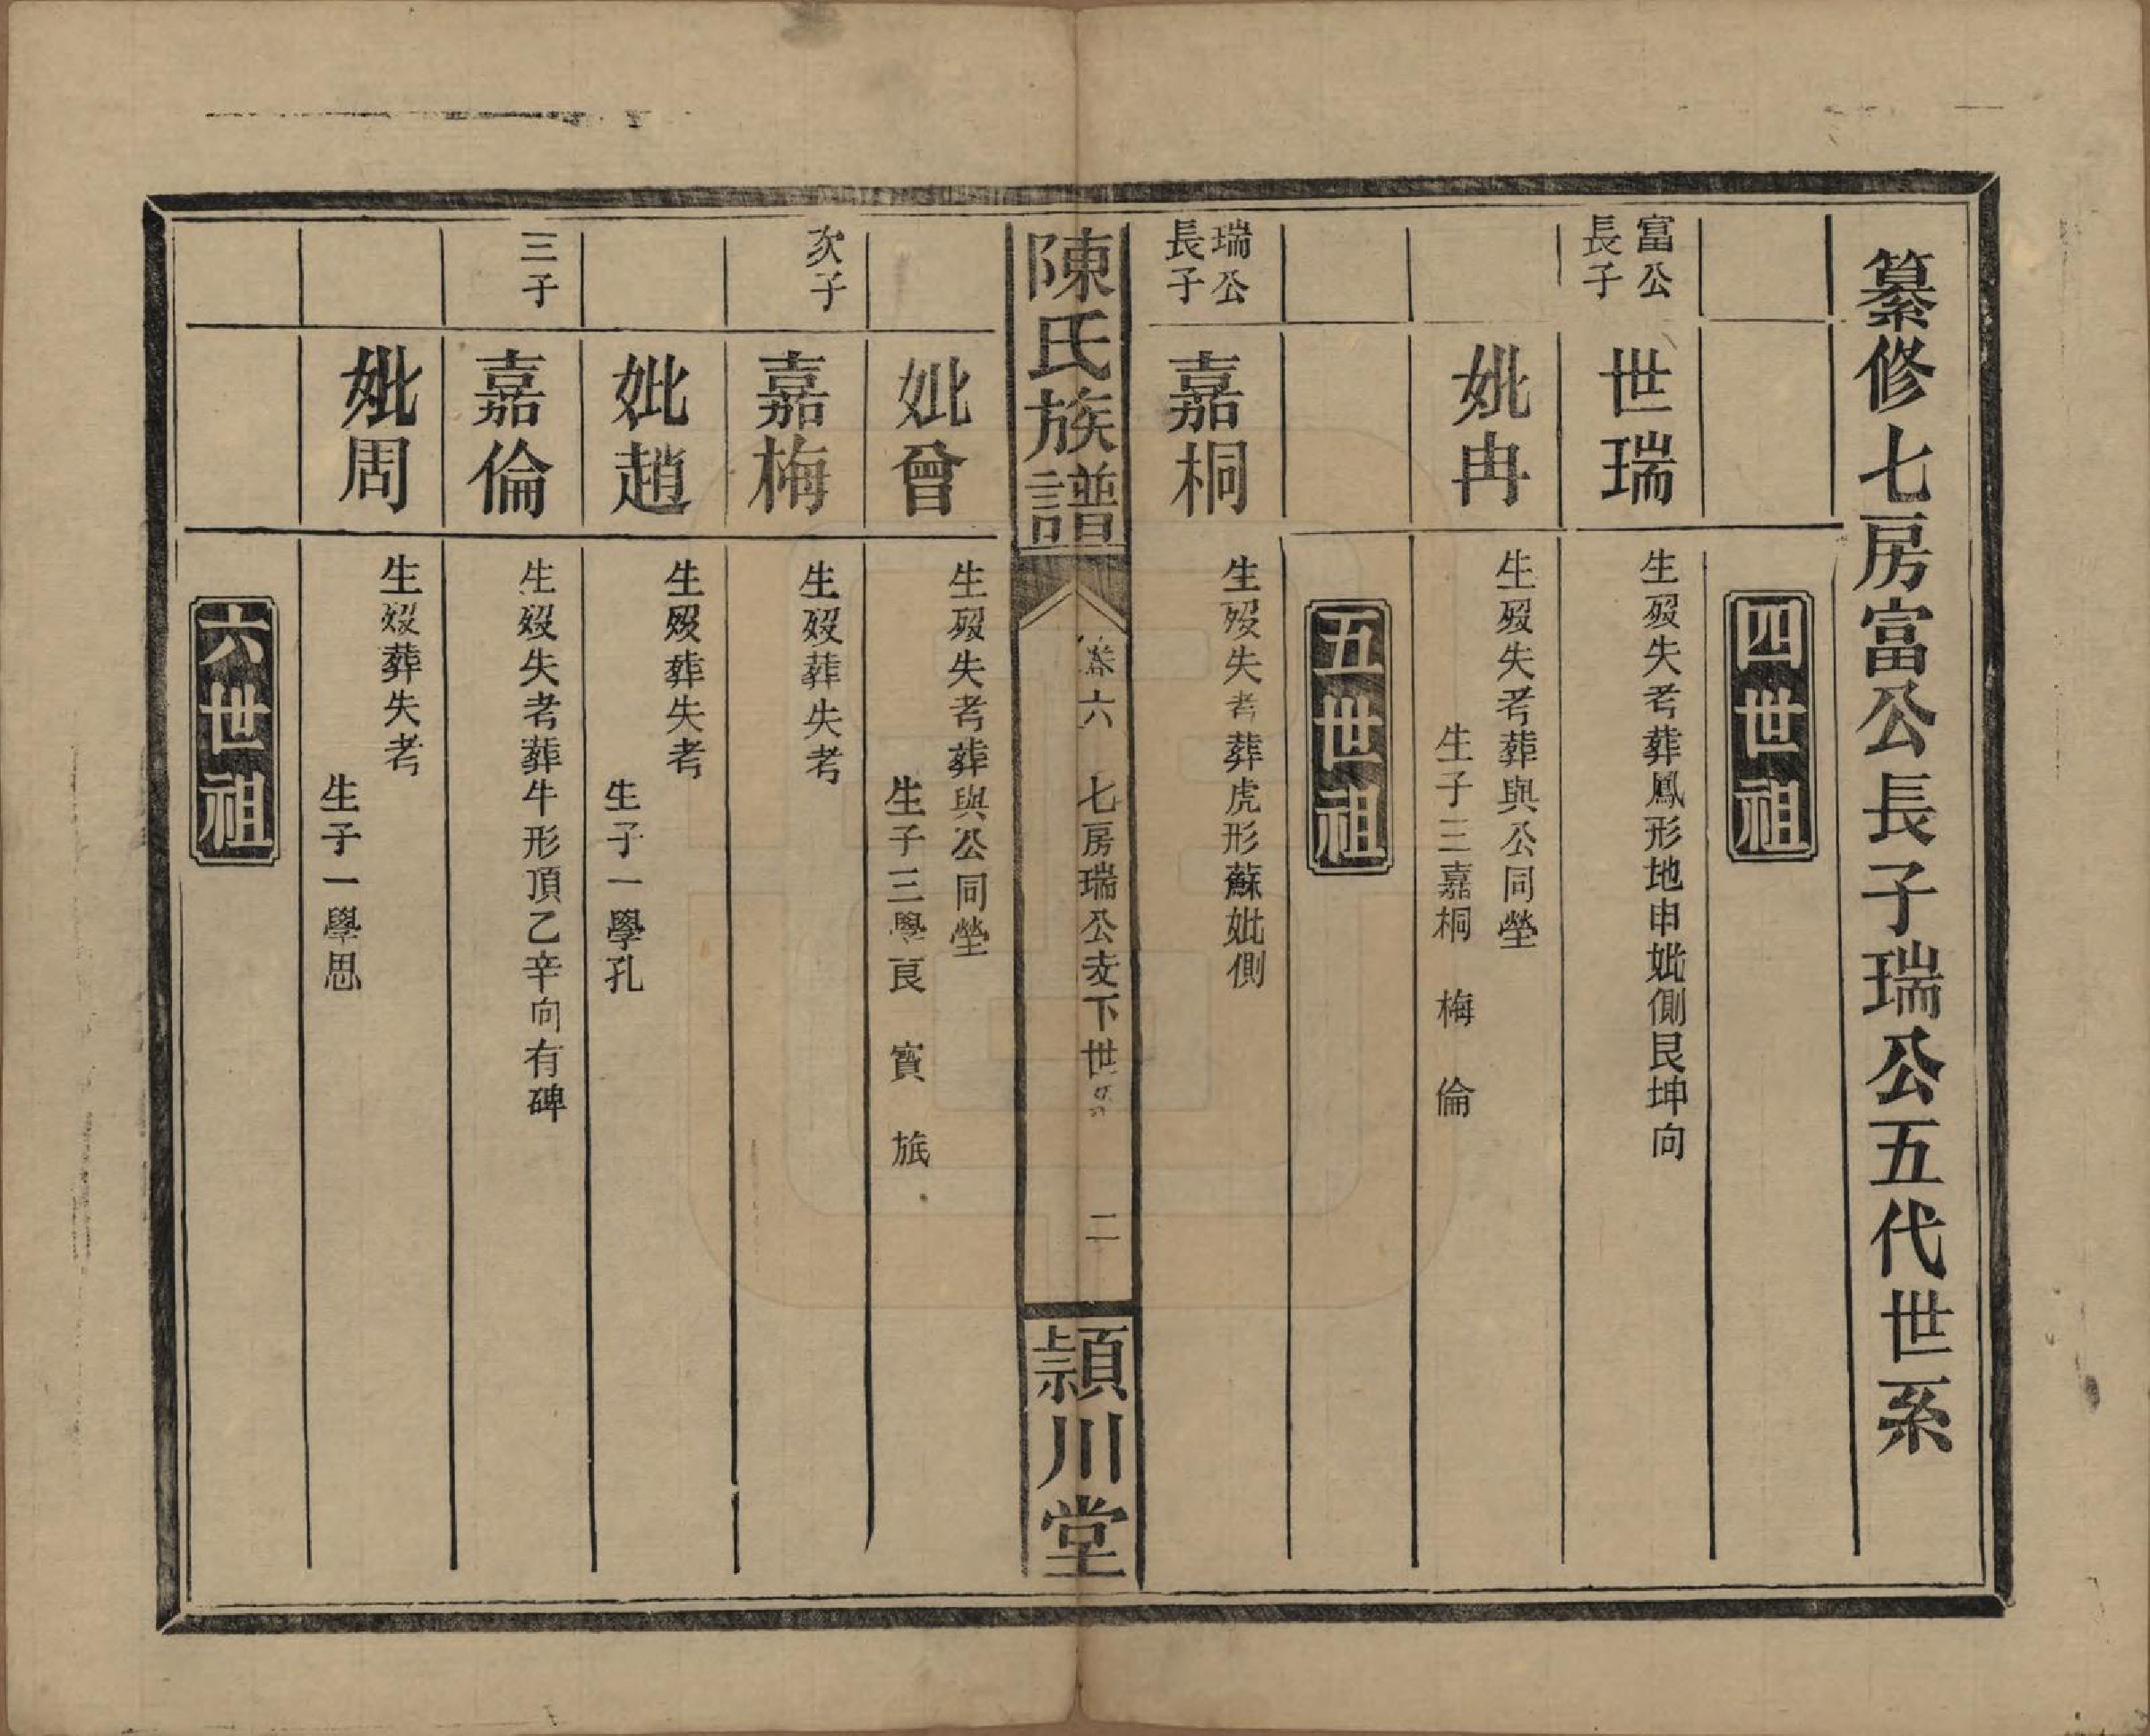 纂修七房富公長子瑞公五代世系
四世祖
富公長子
世瑞
生歿失考葬鳳形地申妣側艮坤向
妣冉
生歿失考葬與公同塋
生子三嘉桐 梅 倫
五世祖
瑞公長子
嘉桐
生歿失考葬虎形蘇妣側
陳氏族譜
卷六 七房瑞公支下世系
二
潁川堂
妣曾
生歿失考葬與公同塋
生子三學良 賓 旅
次子
嘉梅
生歿葬失考
妣趙
生歿葬失考
生子一學孔
三子
嘉倫
生歿失考葬牛形頂乙辛向有碑
妣周
生歿葬失考
生子一學思
六世祖